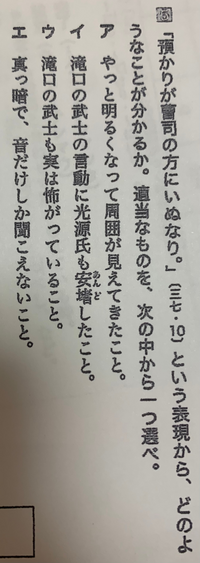 「預かりが曹司の方にいぬなり。」(三七・10)という表現から、どのよ
うなことが分かるか。適当なものを、次の中から一つ選べ。
ア やっと明るくなって周囲が見えてきたこと。
イ 滝口の武士の言動に光源氏も安堵したこと。
あんど
ウ 滝口の武士も実は怖がっていること。
エ 真っ暗で、音だけしか聞こえないこと。